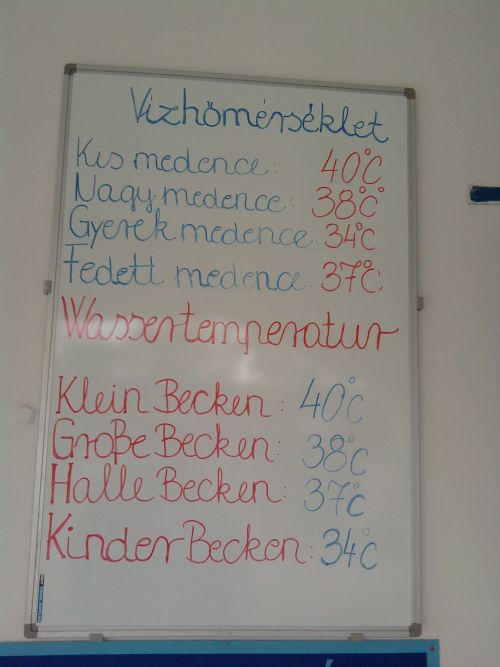 Vizhőmérséklet
Kis medence: 40°C
Nagy medence: 38°C
Gyerek medence: 34°C
Fedett medence: 37°C
Wassertemperatur
Klein Becken: 40°C
Große Becken: 38°C
Halle Becken: 37°C
Kinder Becken: 34°C